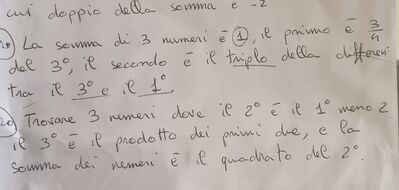 cui doppio della somma è -2
La somma di 3 numeri è 1, il primo è 3/4
del 3°, il secondo è il triplo della differenz
tra il 3° e il 1°
Trovare 3 numeri dove il 2° è il 1° meno 2
il 3° è il prodotto dei primi due, e la
somma dei numeri è il quadrato del 2°.